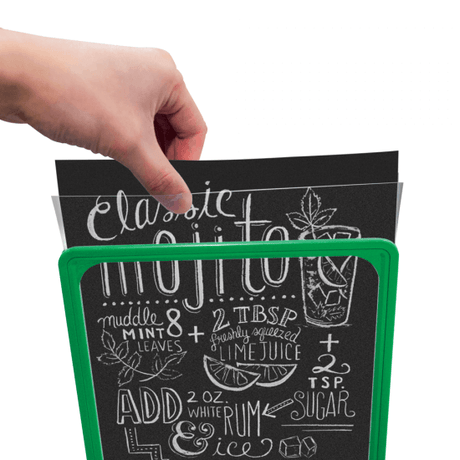 Classic
mojito
muddle 8 + 2 TBSP
MINT freshly squeezed
LEAVES LIME JUICE
+ 2
TSP.
SUGAR
ADD 2 OZ.
WHITE RUM
& ice